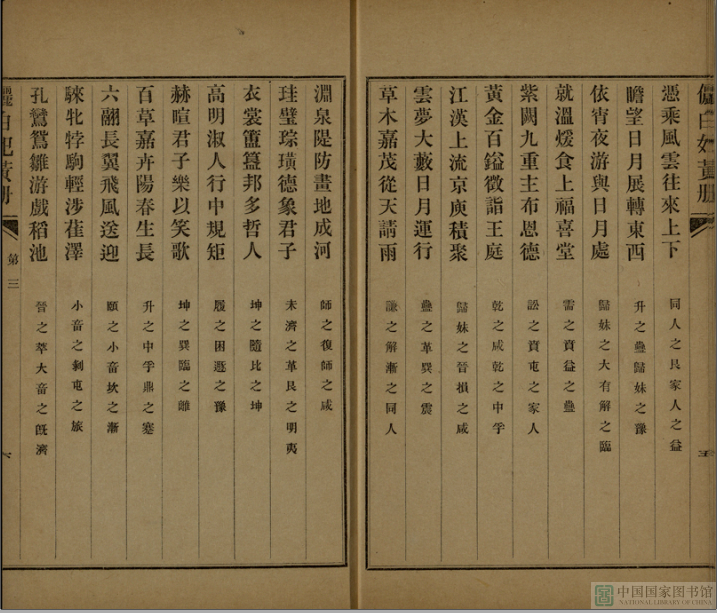 憑乘風雲往來上下　同人之艮家人之益
瞻望日月展轉東西　升之蠱歸妹之豫
依宵夜游與日月處　歸妹之大有解之臨
就溫煖食上福喜堂　需之賁益之蠱
紫闕九重主布恩德　訟之賁屯之家人
黃金百鎰徵詣王庭　乾之咸乾之中孚
江漢上流京庾積聚　歸妹之晉損之咸
雲夢大藪日月運行　蠱之革巽之震
草木嘉茂從天請雨　謙之解漸之同人
五
淵泉隄防畫地成河　師之復師之咸
珪璧琮璜德象君子　未濟之革艮之明夷
衣裳簠簋邦多哲人　坤之隨比之坤
高明淑人行中規矩　履之困遯之豫
赫喧君子樂以笑歌　坤之巽臨之離
百草嘉卉陽春生長　升之中孚鼎之蹇
六翮長翼飛風送迎　頤之小畜坎之漸
騋牝牸駒輕涉萑澤　小畜之剝屯之旅
孔鸞鴛雛游戲稻池　晉之萃大畜之旣濟
第三
六
中国国家图书馆
NATIONAL LIBRARY OF CHINA